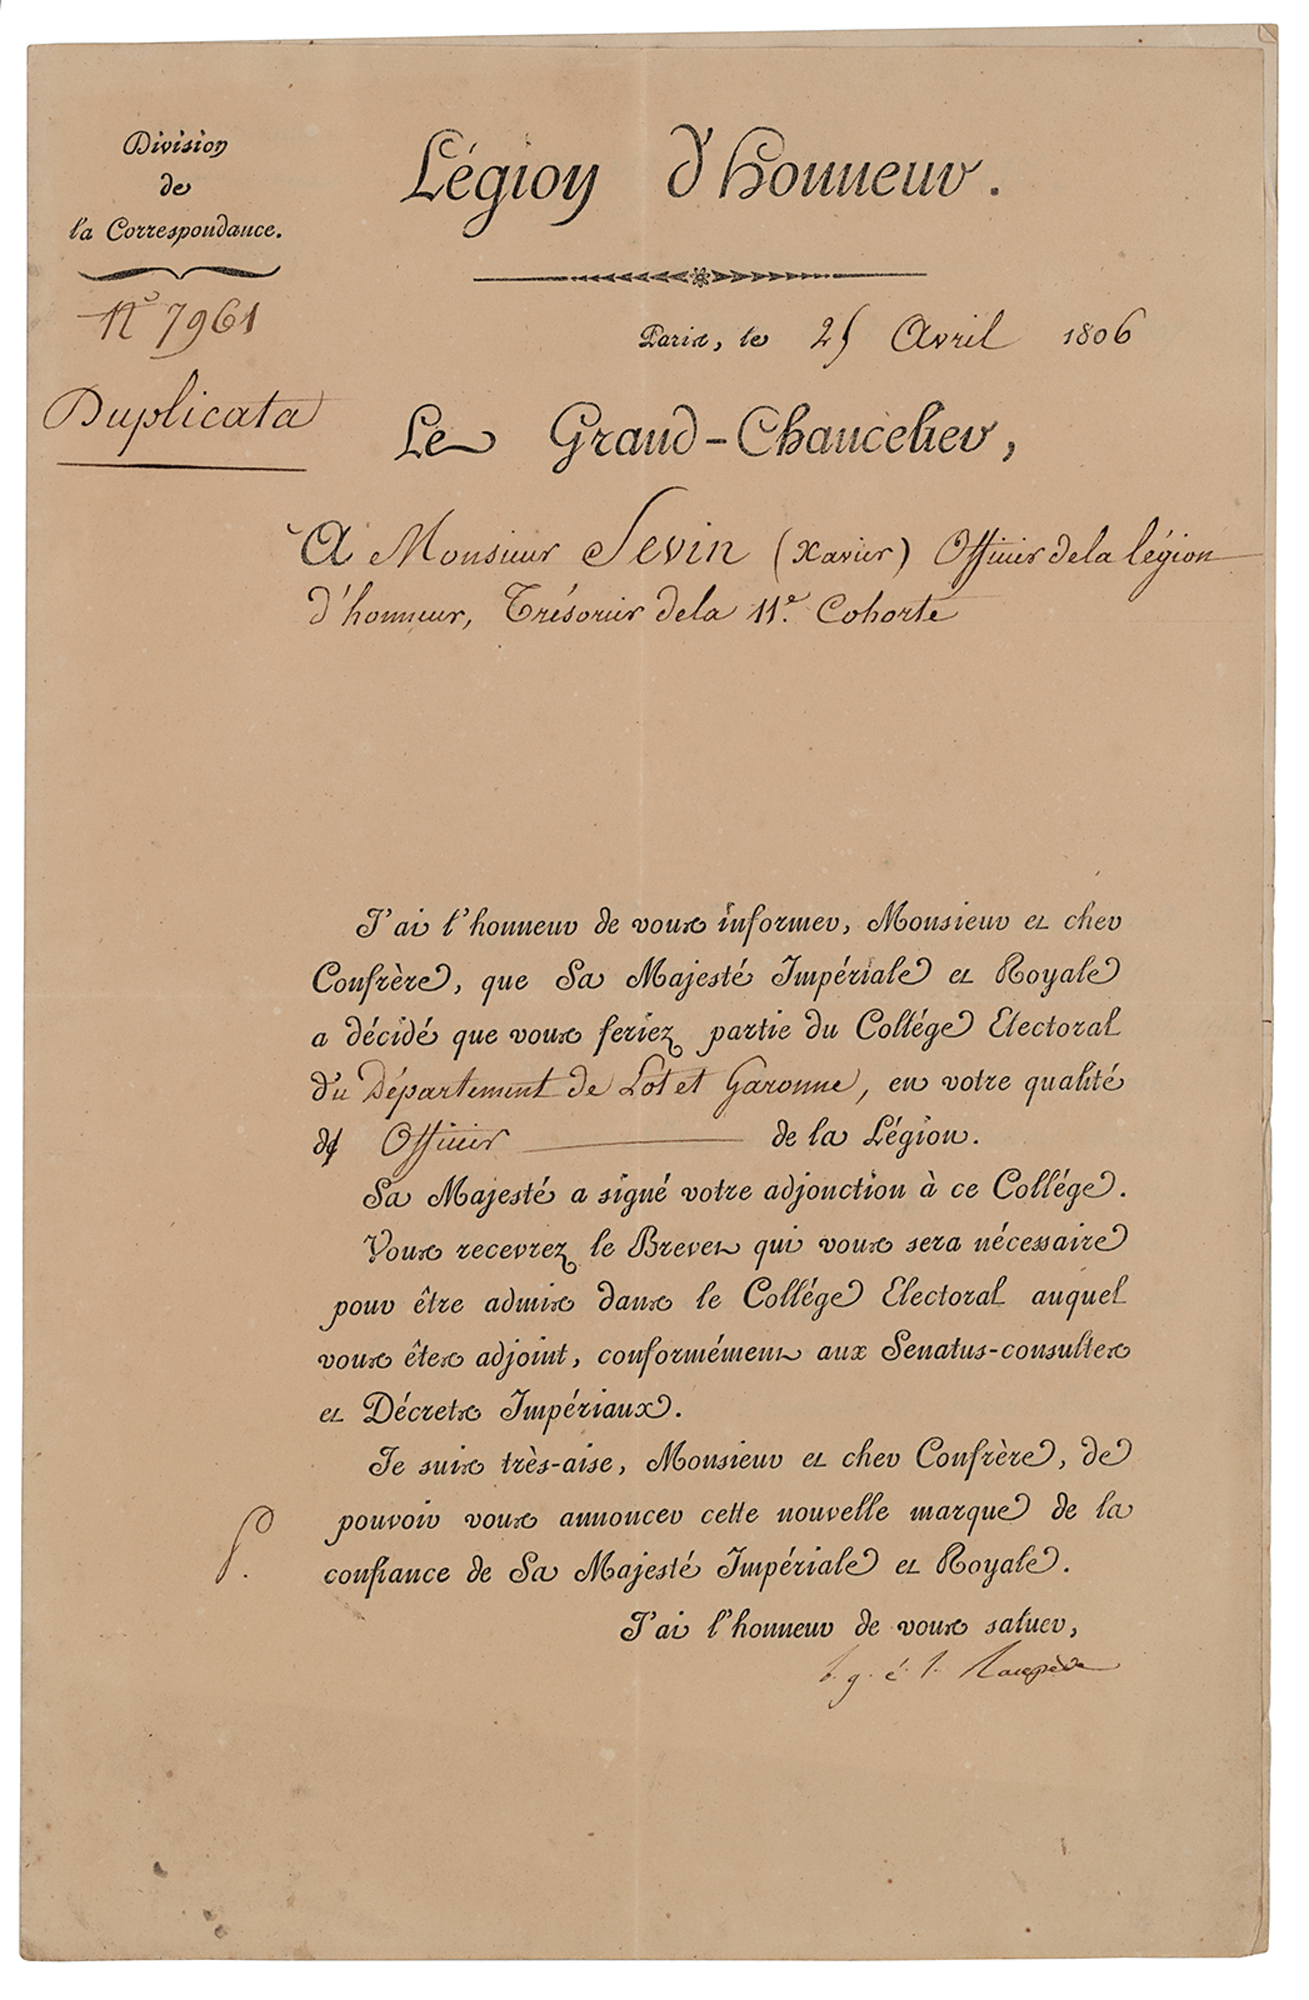 Division
de
la Correspondance.
N° 7961
Duplicata
Légion d'honneur.
Paris, le 25 Avril 1806
Le Grand-Chancelier,
A Monsieur Sevin (xavier) Officier de la légion
d'honneur, Trésorier de la 11e. Cohorte
J'ai l'honneur de vous informer, Monsieur et cher
Confrère, que Sa Majesté Impériale et Royale
a décidé que vous feriez partie du Collége Electoral
du Département de Lot et Garonne, en votre qualité
d' Officier de la Légion.
Sa Majesté a signé votre adjonction à ce Collége.
Vous recevrez le Brevet qui vous sera nécessaire
pour être admis dans le Collége Electoral auquel
vous êtes adjoint, conformément aux Senatus-consultes
et Décrets Impériaux.
Je suis très-aise, Monsieur et cher Confrère, de
pouvoir vous annoncer cette nouvelle marque de la
confiance de Sa Majesté Impériale et Royale.
J'ai l'honneur de vous saluer,
b. g. é. l. Lacepède